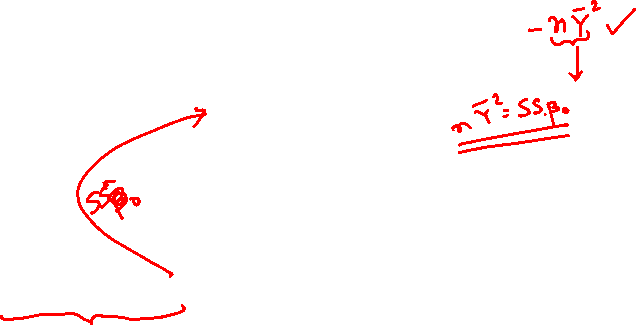 - nȲ² ✓
nȲ² = SSβ₀
SSβ₀